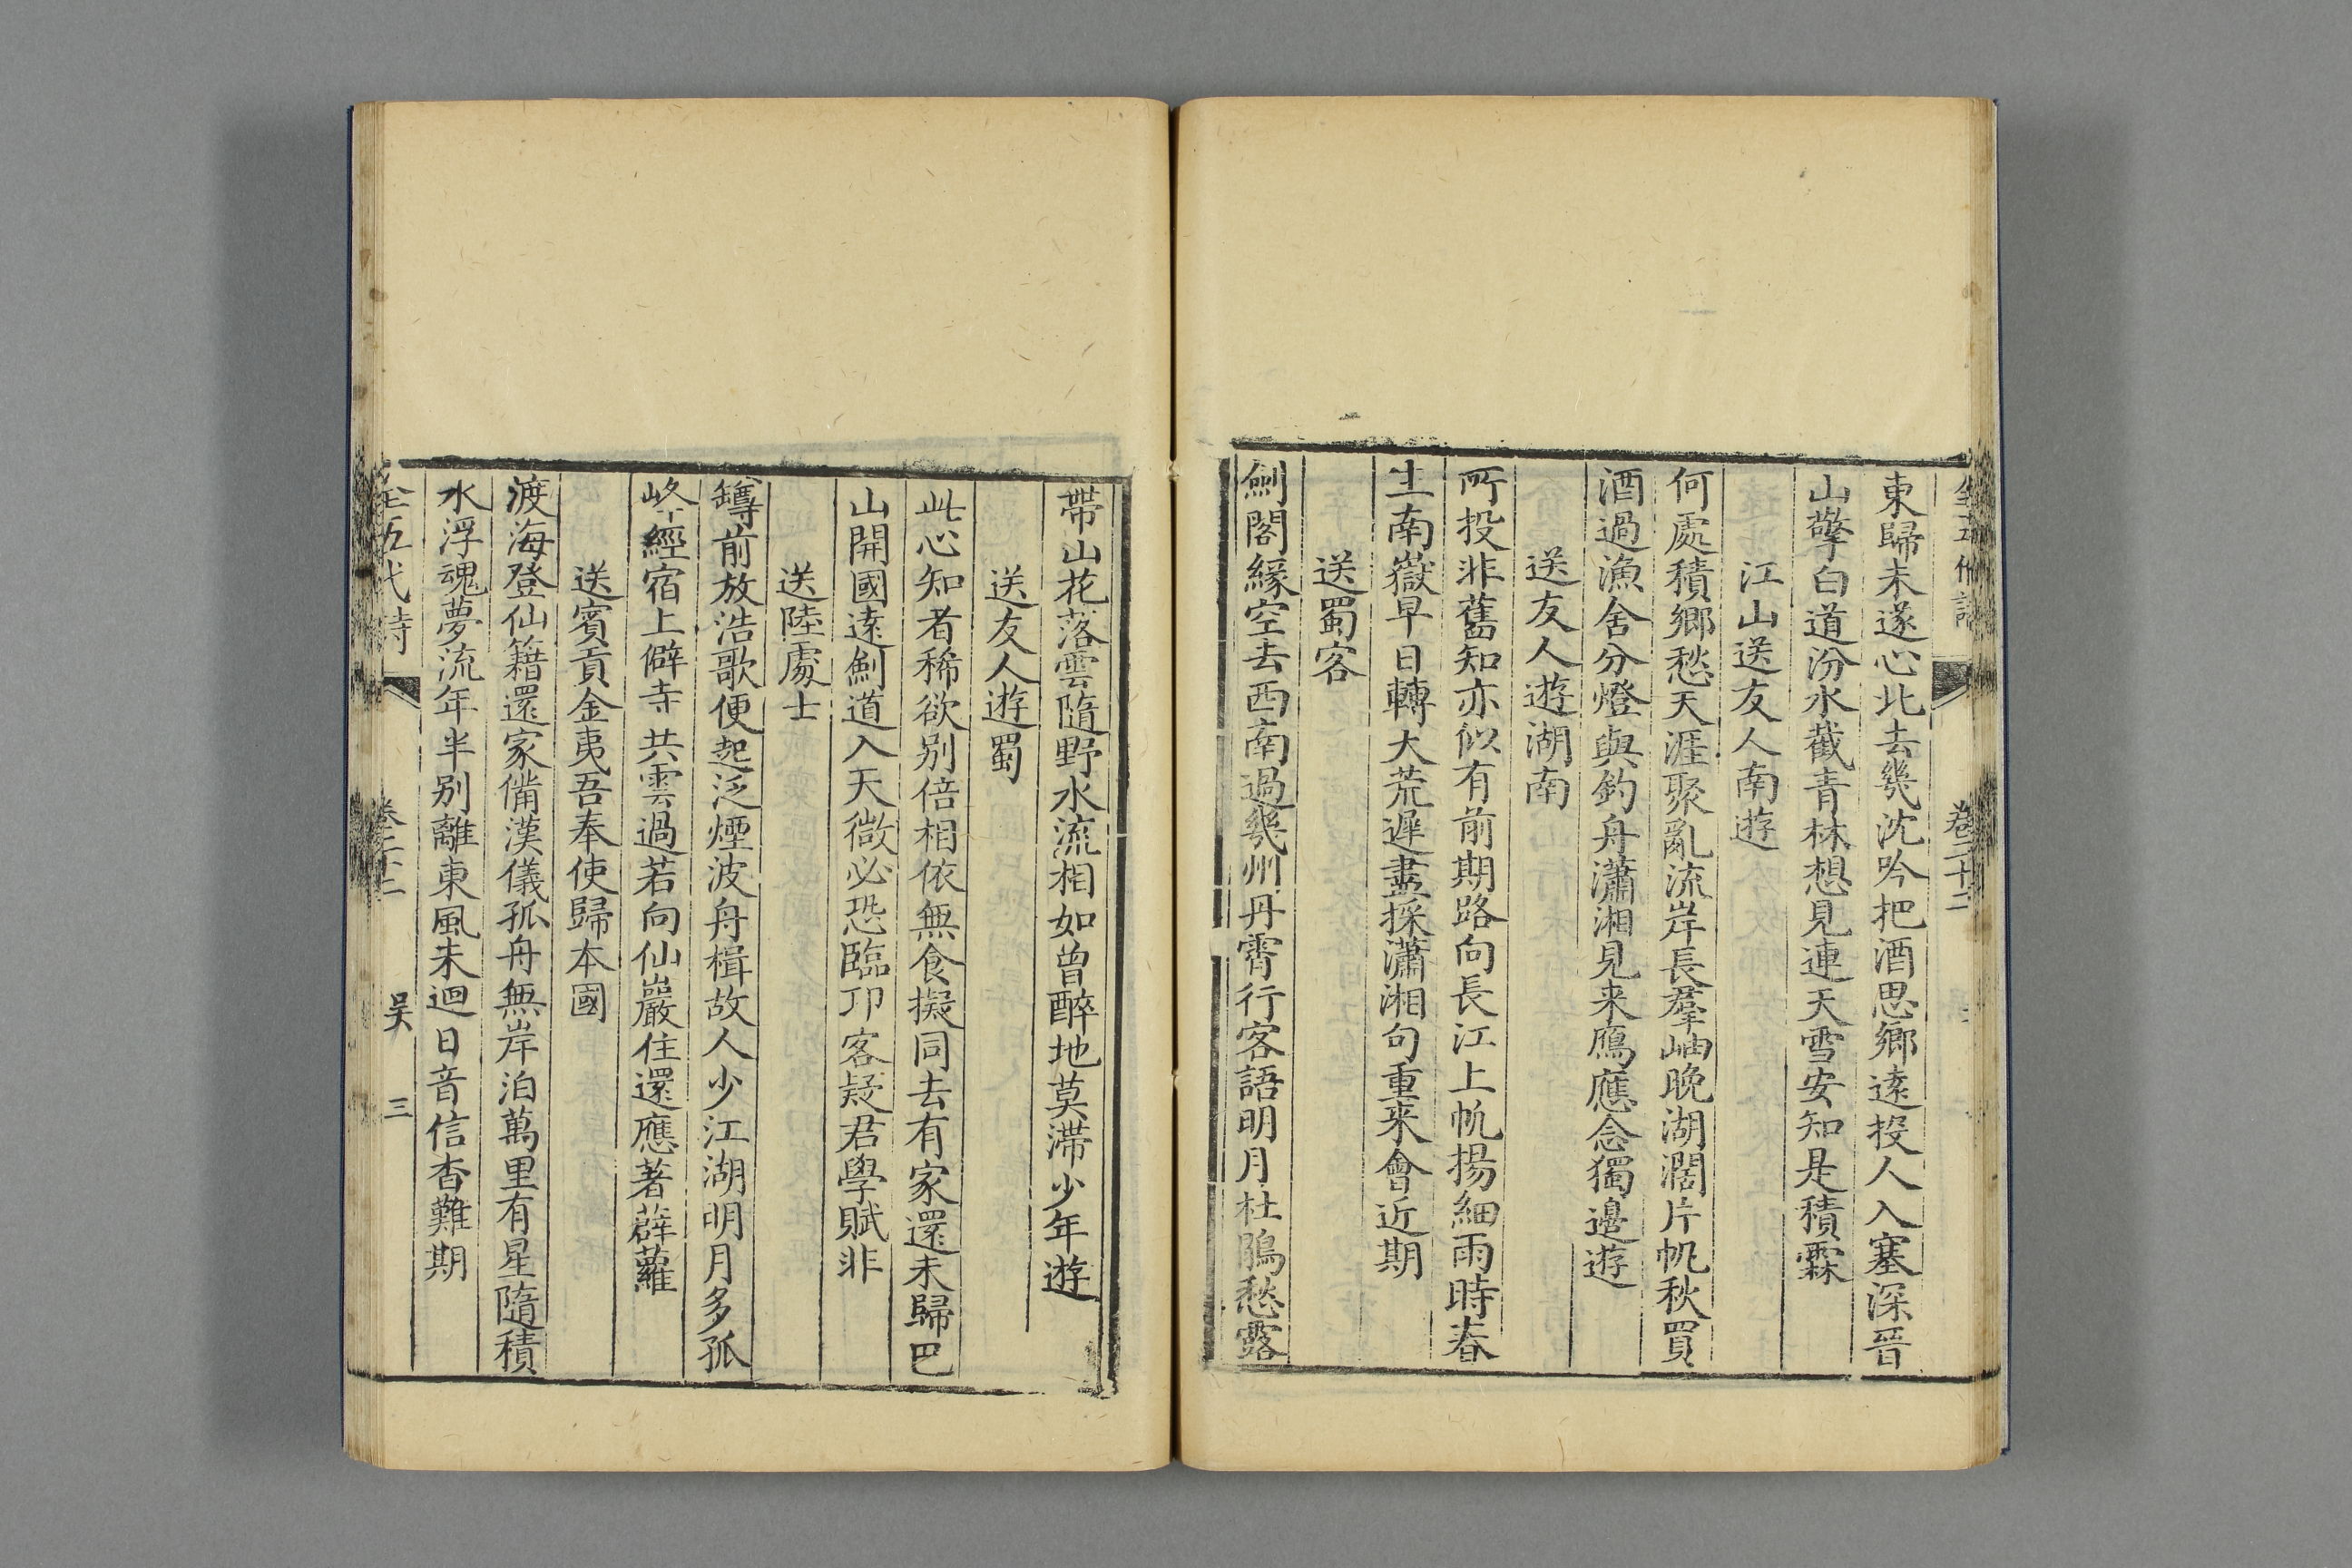 全五代詩 卷二十二
東歸未遂心北去幾沈吟把酒思鄉遠投人入塞深晉
山擎白道汾水截青林想見連天雪安知是積霖
江山送友人南遊
何處積鄉愁天涯聚亂流岸長羣岫晚湖濶片帆秋買
酒過漁舍分燈與釣舟瀟湘見来鴈應念獨邊遊
送友人遊湖南
所投非舊知亦似有前期路向長江上帆揚細雨時春
生南嶽早日轉大荒遲盡採瀟湘句重来會近期
送蜀客
劍閣緣空去西南過幾州丹霄行客語明月杜鵑愁露
帶山花落雲隨野水流相如曾醉地莫滯少年遊
送友人遊蜀
此心知者稀欲别倍相依無食擬同去有家還未歸巴
山開國遠劍道入天微必恐臨邛客疑君學賦非
送陸處士
罇前放浩歌便起泛煙波舟楫故人少江湖明月多孤
峰經宿上僻寺共雲過若向仙巖住還應著薜蘿
送賓貢金夷吾奉使歸本國
渡海登仙籍還家備漢儀孤舟無岸泊萬里有星隨積
水浮魂夢流年半别離東風未迴日音信杳難期
全五代詩 卷二十二 吴 三